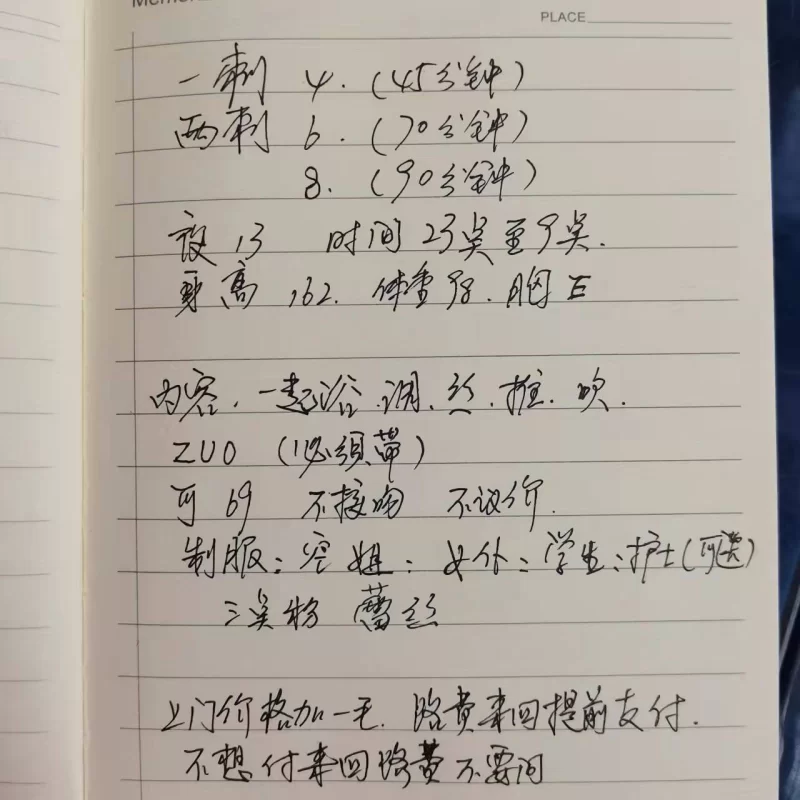 PLACE
一刺 4. (45分钟)
两刺 6. (70分钟)
8. (90分钟)
夜13 时间23点至9点.
身高162. 体重98. 胸E
内容. 一起浴.调.丝.推.吹.
ZUO (必须带)
可69 不接吻 不议价.
制服:空姐:女仆:学生:护士(可选)
三点粉 蕾丝
上门价格加一毛. 路费来回提前支付.
不想付来回路费不要问